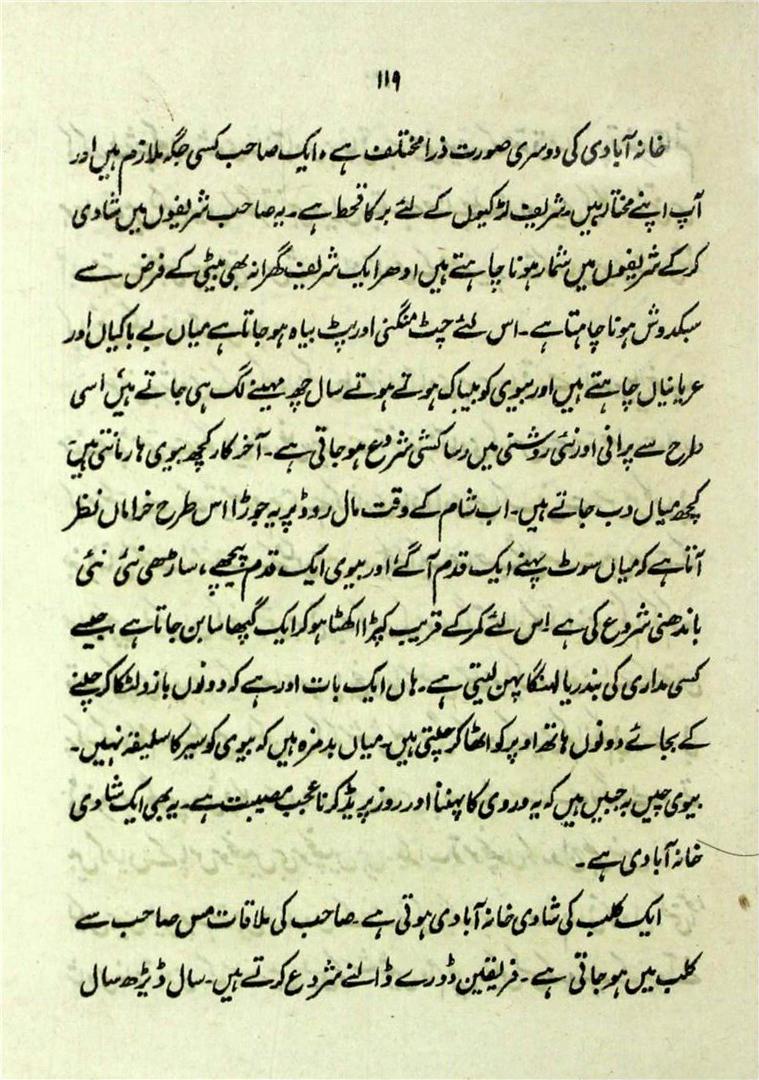 ۱۱۹
خانہ آبادی کی دوسری صورت ذرا مختلف ہے، ایک صاحب کسی جگہ ملازم ہیں اور
آپ اپنے مختار ہیں۔ شریف لڑکیوں کے لئے بر کا قحط ہے۔ یہ صاحب شریفوں میں شادی
کر کے شریفوں میں شمار ہونا چاہتے ہیں ادھر ایک شریف گھرانہ بھی بیٹی کے فرض سے
سبکدوش ہونا چاہتا ہے۔ اس لئے چٹ منگنی اور پٹ بیاہ ہو جاتا ہے میاں بے باکیاں اور
عریانیاں چاہتے ہیں اور بیوی کو بیباک ہوتے ہوتے سال چھ مہینے لگ ہی جاتے ہیں اسی
طرح سے پرانی اور نئی روشنی میں رسا کشی شروع ہو جاتی ہے۔ آخر کار کچھ بیوی ہار مانتی ہیں
کچھ میاں دب جاتے ہیں۔ اب شام کے وقت مال روڈ پر یہ جوڑا اس طرح خراماں نظر
آتا ہے کہ میاں سوٹ پہنے ایک قدم آگے اور بیوی ایک قدم پیچھے، ساڑھی نئی نئی
باندھنی شروع کی ہے اس لئے کمر کے قریب کپڑا اکھٹا ہو کر ایک گپھا سا بن جاتا ہے، جیسے
کسی مداری کی بندریا لہنگا پہن لیتی ہے۔ ہاں ایک بات اور ہے کہ دونوں بازو لٹکا کر چلنے
کے بجائے دونوں ہاتھ اوپر کو اٹھا کر چلتی ہیں۔ میاں بدمزہ ہیں کہ بیوی کو سیر کا سلیقہ نہیں۔
بیوی چیں بہ جبیں ہیں کہ یہ وردی کا پہننا اور روز پریڈ کرنا عجب مصیبت ہے۔ یہ بھی ایک شادی
خانہ آبادی ہے۔
ایک کلب کی شادی خانہ آبادی ہوتی ہے۔ صاحب کی ملاقات مس صاحب سے
کلب میں ہو جاتی ہے۔ فریقین ڈورے ڈالنے شروع کرتے ہیں۔ سال ڈیڑھ سال